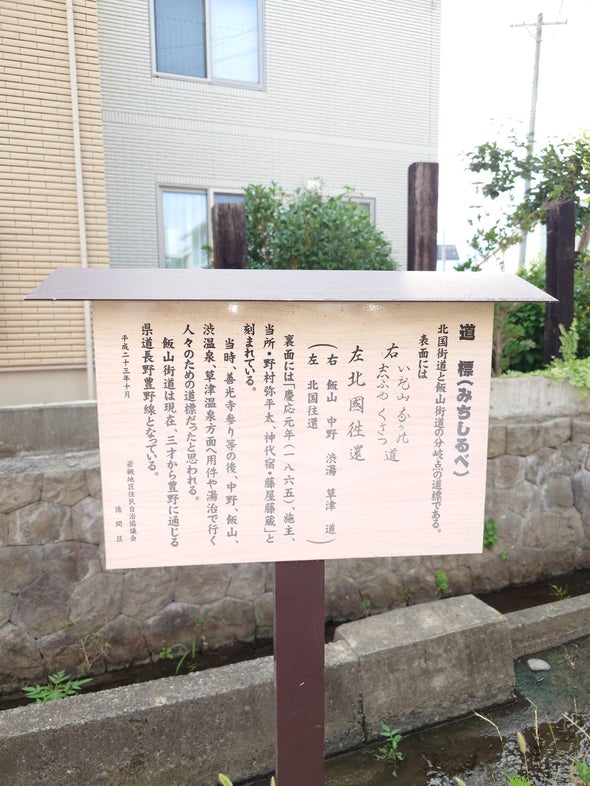 道 標(みちしるべ)
北国街道と飯山街道の分岐点の道標である。
表面には
右 いゝ山 なか乃 道
志ふゆ くさつ
左 北國徃還
(右 飯山 中野 渋湯 草津 道)
(左 北国往還)
裏面には「慶応元年(一八六五)、施主、
当所・野村弥平太、神代宿・藤屋藤蔵」と
刻まれている。
当時、善光寺参り等の後、中野、飯山、
渋温泉、草津温泉方面へ用件や湯治で行く
人々のための道標だったと思われる。
飯山街道は現在、三才から豊野に通じる
県道長野豊野線となっている。
平成二十三年十月
若槻地区住民自治協議会
徳間区